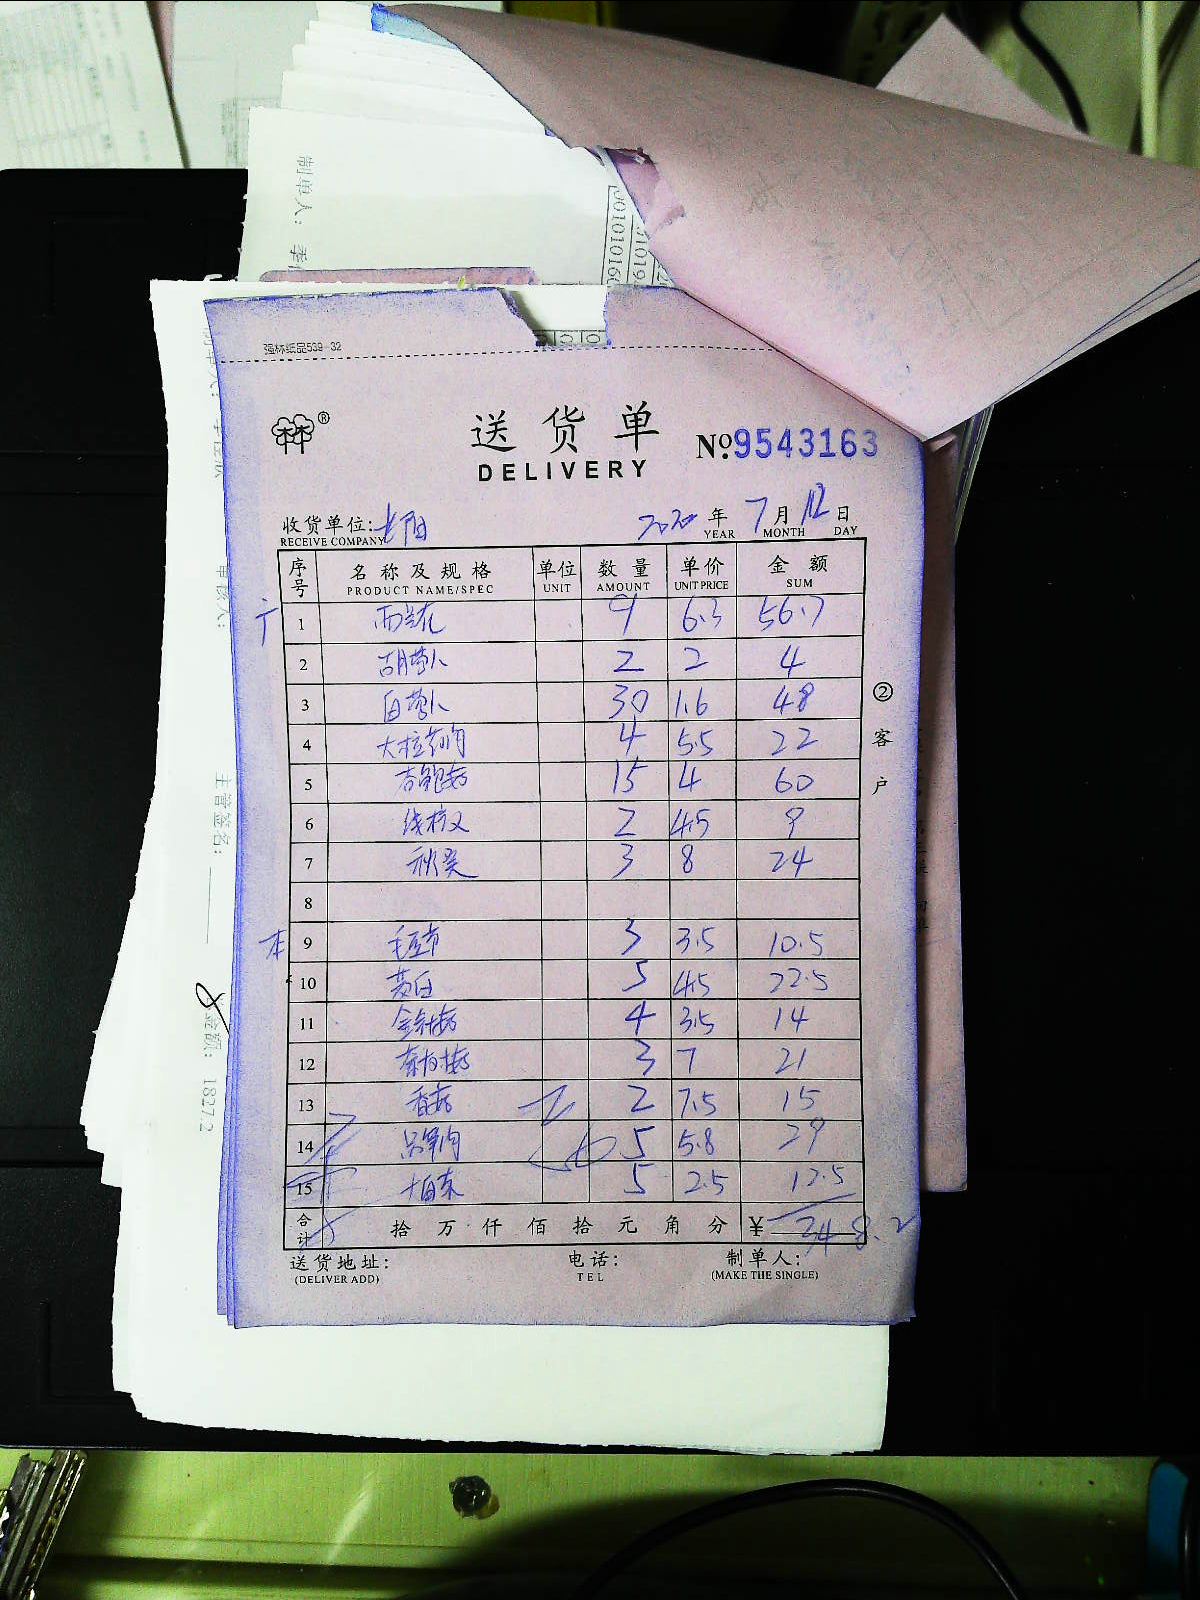 制单人:
强林纸品539-32
送货单
DELIVERY
№9543163
收货单位:
RECEIVE COMPANY
2020年7月12日
YEAR MONTH DAY
序号 名称及规格 单位 数量 单价 金额
PRODUCT NAME/SPEC UNIT AMOUNT UNIT PRICE SUM
1 西兰花 9 6.3 56.7
2 胡萝卜 2 2 4
3 白萝卜 30 1.6 48
4 4 5.5 22
5 杏鲍菇 15 4 60
6 线椒 2 4.5 9
7 秋葵 3 8 24
8
本 9 毛豆节 3 3.5 10.5
10 黄白 5 4.5 22.5
11 金针菇 4 3.5 14
12 3 7 21
13 香菇 2 7.5 15
14 5 5.8 29
15 5 2.5 12.5
合计 拾万仟佰拾元角分 ¥ 348.2
送货地址: 电话: 制单人:
(DELIVER ADD) TEL (MAKE THE SINGLE)
②客户
审核人:
主管签名:
金额: 1827.2